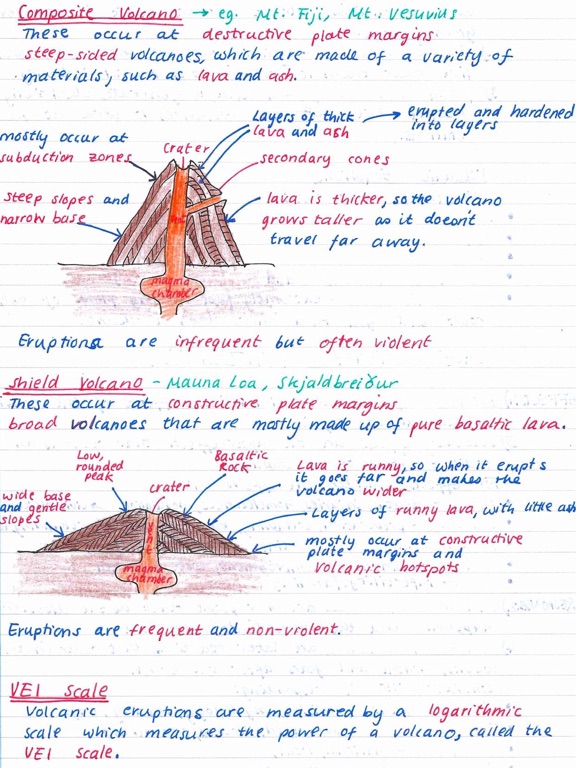 Composite Volcano → eg. Mt. Fiji, Mt. Vesuvius
These occur at destructive plate margins.
steep-sided volcanoes, which are made of a variety of
materials, such as lava and ash.
Layers of thick
lava and ash
→ erupted and hardened
into layers
mostly occur at
subduction zones
crater
secondary cones
steep slopes and
narrow base
lava is thicker, so the volcano
grows taller as it doesn't
travel far away.
magma
chamber
Eruptions are infrequent but often violent
Shield Volcano - Mauna Loa, Skjaldbreiður
These occur at constructive plate margins
broad volcanoes that are mostly made up of pure basaltic lava.
Low,
rounded
peak
Basaltic
Rock
crater
Lava is runny, so when it erupts
it goes far and makes the
volcano wider
wide base
and gentle
slopes
Layers of runny lava, with little ash
Vent
mostly occur at constructive
plate margins and
volcanic hotspots
magma
chamber
Eruptions are frequent and non-violent.
VEI scale
Volcanic eruptions are measured by a logarithmic
scale which measures the power of a volcano, called the
VEI scale.